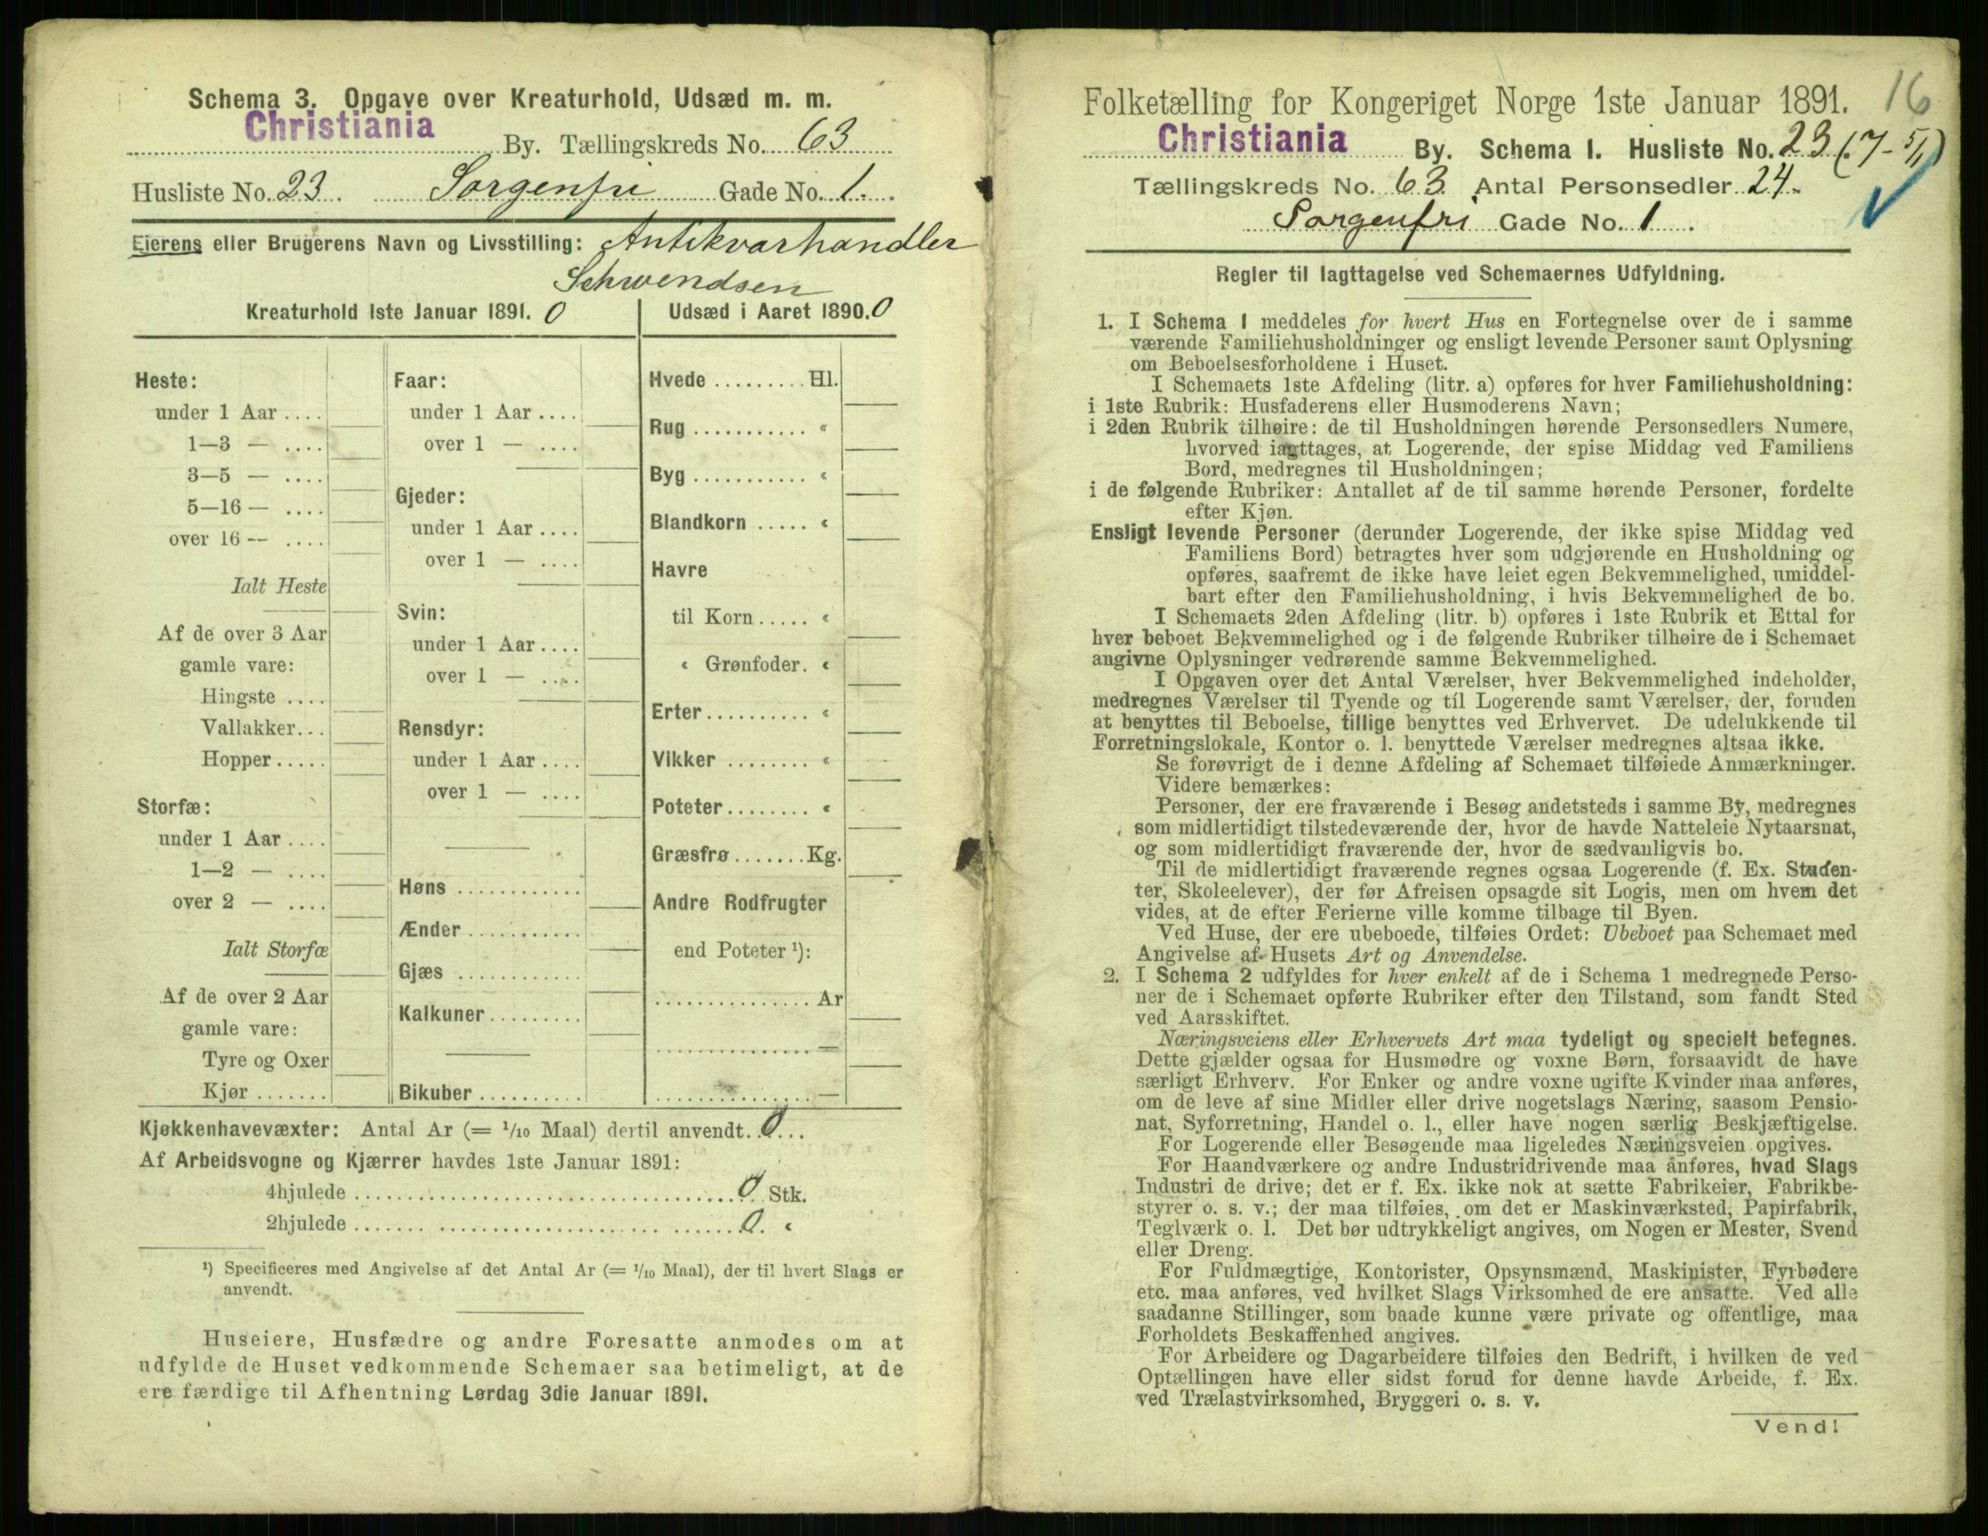 Schema 3. Opgave over Kreaturhold, Udsæd m. m.
Christiania By. Tællingskreds No. 63
Husliste No. 23. Sorgenfri Gade No. 1.
Eierens eller Brugerens Navn og Livsstilling: Antikvarhandler
Schwendsen
Kreaturhold 1ste Januar 1891. 0
Heste:
under 1 Aar ....
1—3 — ....
3—5 — ....
5—16 — ....
over 16 — ....
Ialt Heste
Af de over 3 Aar
gamle vare:
Hingste ....
Vallakker...
Hopper .....
Storfæ:
under 1 Aar ....
1—2 — ....
over 2 — ....
Ialt Storfæ
Af de over 2 Aar
gamle vare:
Tyre og Oxer
Kjør .......
Faar:
under 1 Aar ....
over 1 — ....
Gjeder:
under 1 Aar ....
over 1 — ....
Svin:
under 1 Aar ....
over 1 — ....
Rensdyr:
under 1 Aar ....
over 1 — ....
Høns ............
Ænder ...........
Gjæs ............
Kalkuner .........
Bikuber ..........
Udsæd i Aaret 1890. 0
Hvede ......... Hl.
Rug ........... «
Byg ........... «
Blandkorn ..... «
Havre
til Korn ..... «
« Grønfoder. «
Erter .......... «
Vikker ........ «
Poteter ........ «
Græsfrø ....... Kg.
Andre Rodfrugter
end Poteter ¹):
............... Ar
............... —
............... —
Kjøkkenhavevæxter: Antal Ar (= 1/10 Maal) dertil anvendt. 0...
Af Arbeidsvogne og Kjærrer havdes 1ste Januar 1891:
4hjulede .................................... 0 Stk.
2hjulede .................................... 0. «
¹) Specificeres med Angivelse af det Antal Ar (= 1/10 Maal), der til hvert Slags er
anvendt.
Huseiere, Husfædre og andre Foresatte anmodes om at
udfylde de Huset vedkommende Schemaer saa betimeligt, at de
ere færdige til Afhentning Lørdag 3die Januar 1891.
16
Folketælling for Kongeriget Norge 1ste Januar 1891.
Christiania By. Schema 1. Husliste No. 23 (7-5/1)
Tællingskreds No. 63 Antal Personsedler 24.
Sorgenfri Gade No. 1.
Regler til Iagttagelse ved Schemaernes Udfyldning.
1. I Schema 1 meddeles for hvert Hus en Fortegnelse over de i samme
værende Familiehusholdninger og ensligt levende Personer samt Oplysning
om Beboelsesforholdene i Huset.
I Schemaets 1ste Afdeling (litr. a) opføres for hver Familiehusholdning:
i 1ste Rubrik: Husfaderens eller Husmoderens Navn;
i 2den Rubrik tilhøire: de til Husholdningen hørende Personsedlers Numere,
hvorved iagttages, at Logerende, der spise Middag ved Familiens
Bord, medregnes til Husholdningen;
i de følgende Rubriker: Antallet af de til samme hørende Personer, fordelte
efter Kjøn.
Ensligt levende Personer (derunder Logerende, der ikke spise Middag ved
Familiens Bord) betragtes hver som udgjørende en Husholdning og
opføres, saafremt de ikke have leiet egen Bekvemmelighed, umiddel-
bart efter den Familiehusholdning, i hvis Bekvemmelighed de bo.
I Schemaets 2den Afdeling (litr. b) opføres i 1ste Rubrik et Ettal for
hver beboet Bekvemmelighed og i de følgende Rubriker tilhøire de i Schemaet
angivne Oplysninger vedrørende samme Bekvemmelighed.
I Opgaven over det Antal Værelser, hver Bekvemmelighed indeholder,
medregnes Værelser til Tyende og til Logerende samt Værelser, der, foruden
at benyttes til Beboelse, tillige benyttes ved Erhvervet. De udelukkende til
Forretningslokale, Kontor o. l. benyttede Værelser medregnes altsaa ikke.
Se forøvrigt de i denne Afdeling af Schemaet tilføiede Anmærkninger.
Videre bemærkes:
Personer, der ere fraværende i Besøg andetsteds i samme By, medregnes
som midlertidigt tilstedeværende der, hvor de havde Natteleie Nytaarsnat,
og som midlertidigt fraværende der, hvor de sædvanligvis bo.
Til de midlertidigt fraværende regnes ogsaa Logerende (f. Ex. Studen-
ter, Skoleelever), der før Afreisen opsagde sit Logis, men om hvem det
vides, at de efter Ferierne ville komme tilbage til Byen.
Ved Huse, der ere ubeboede, tilføies Ordet: Ubeboet paa Schemaet med
Angivelse af Husets Art og Anvendelse.
2. I Schema 2 udfyldes for hver enkelt af de i Schema 1 medregnede Perso-
ner de i Schemaet opførte Rubriker efter den Tilstand, som fandt Sted
ved Aarsskiftet.
Næringsveiens eller Erhvervets Art maa tydeligt og specielt betegnes.
Dette gjælder ogsaa for Husmødre og voxne Børn, forsaavidt de have
særligt Erhverv. For Enker og andre voxne ugifte Kvinder maa anføres,
om de leve af sine Midler eller drive nogetslags Næring, saasom Pensio-
nat, Syforretning, Handel o. l., eller have nogen særlig Beskjæftigelse.
For Logerende eller Besøgende maa ligeledes Næringsveien opgives.
For Haandværkere og andre Industridrivende maa anføres, hvad Slags
Industri de drive; det er f. Ex. ikke nok at sætte Fabrikeier, Fabrikbe-
styrer o. s. v.; der maa tilføies, om det er Maskinværksted, Papirfabrik,
Teglværk o. l. Det bør udtrykkeligt angives, om Nogen er Mester, Svend
eller Dreng.
For Fuldmægtige, Kontorister, Opsynsmænd, Maskinister, Fyrbødere
etc. maa anføres, ved hvilket Slags Virksomhed de ere ansatte. Ved alle
saadanne Stillinger, som baade kunne være private og offentlige, maa
Forholdets Beskaffenhed angives.
For Arbeidere og Dagarbeidere tilføies den Bedrift, i hvilken de ved
Optællingen have eller sidst forud for denne havde Arbeide, f. Ex.
ved Trælastvirksomhed, Bryggeri o. s. v.
Vend!